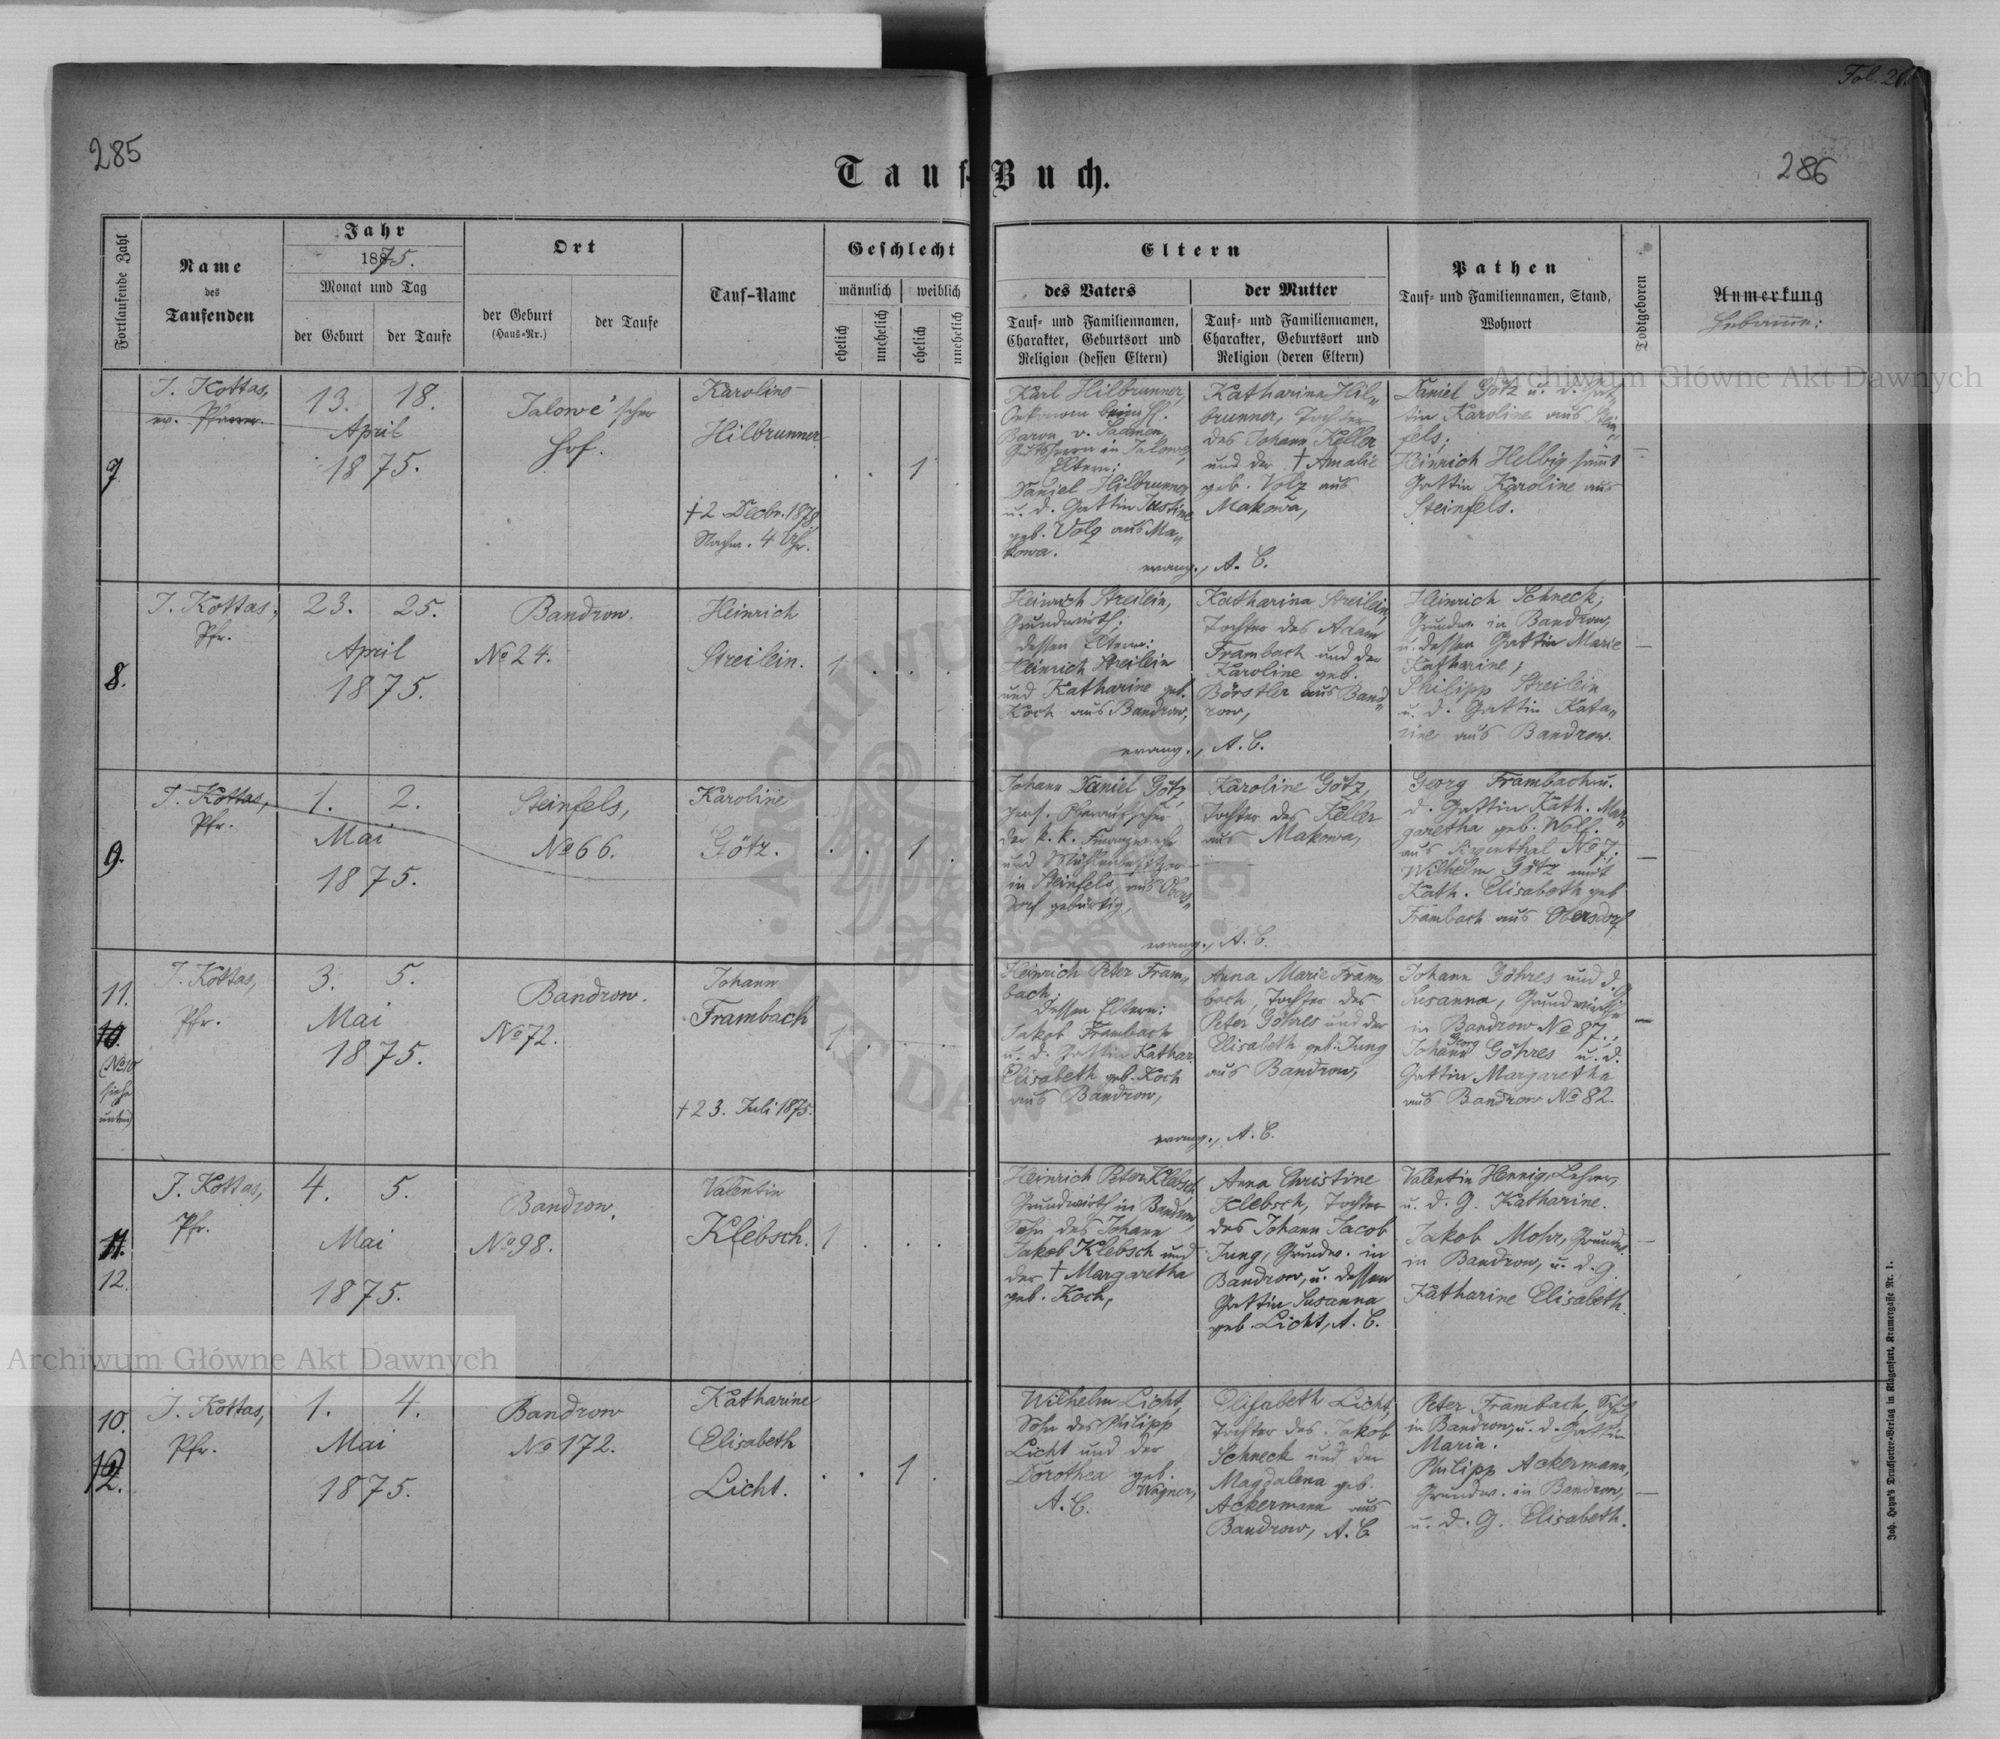 Fol. 26.
285
286
Tauf-Buch.
Fortlaufende Zahl
Name
des
Taufenden
Jahr
1875.
Monat und Tag
der Geburt
der Taufe
Ort
der Geburt
(Haus-Nr.)
der Taufe
Tauf-Name
Geschlecht
männlich
weiblich
ehelich
unehelich
ehelich
unehelich
Eltern
des Vaters
Tauf- und Familiennamen,
Charakter, Geburtsort und
Religion (dessen Eltern)
der Mutter
Tauf- und Familiennamen,
Charakter, Geburtsort und
Religion (deren Eltern)
Pathen
Tauf- und Familiennamen, Stand,
Wohnort
Todtgeboren
Anmerkung
Hebamme:
7.
J. Kottas,
ev. Pfarrer.
13. 18.
April
1875.
Jalowe'scher
Hof.
Karoline
Hilbrunner
† 2 Decbr. 1878,
Nachm. 4 Uhr.
. . 1
Karl Hilbrunner,
Oekonom beim H.
Baron v.
Gutsherrn in Jalowe,
Eltern:
Daniel Hilbrunner
u. d. Gattin Justine
geb. Volz aus Ma-
kowa.
Katharina Hil-
brunner, Tochter
des Johann Keller
und der † Amalie
geb. Volz aus
Makowa,
evang., A. C.
Daniel Götz u. d. Gat-
tin Karoline aus Stein-
fels;
Heinrich Helbig sammt
Gattin Karoline aus
Steinfels.
8.
J. Kottas,
Pfr.
23. 25.
April
1875.
Bandrow.
No 24.
Heinrich
Streilein.
1 . . .
Heinrich Streilein,
Grundwirth;
dessen Eltern:
Heinrich Streilein
und Katharine geb.
Koch aus Bandrow,
Katharina Streilein,
Tochter des Adam
Frambach und der
Karoline geb.
Börstler aus Band-
row,
evang., A. C.
Heinrich Schneck,
Grundw. in Bandrow,
u. dessen Gattin Marie
Katharine;
Philipp Streilein
u. d. Gattin Kata-
rine aus Bandrow.
9.
J. Kottas,
Pfr.
1. 2.
Mai
1875.
Steinfels,
No 66.
Karoline
Götz.
. . 1 .
Johann Daniel Götz,
pens. Oberaufseher
der k. k. Finanzwache
und Mühlenbesitzer
in Steinfels, aus Obers-
dorf gebürtig,
Karoline Götz,
Tochter des Keller
aus Makowa,
evang., A. C.
Georg Frambach u.
d. Gattin Kath. Mar-
garetha geb. Wolf.
aus No 7.;
Wilhelm Götz mit
Kath. Elisabeth geb.
Frambach aus Obersdorf
11.
10.
(No 10
siehe
unten)
J. Kottas,
Pfr.
3. 5.
Mai
1875.
Bandrow.
No 72.
Johann
Frambach
† 23. Juli 1875.
1 . . .
Heinrich Peter Fram-
bach.
Dessen Eltern:
Jakob Frambach
u. d. Gattin Kathar.
Elisabeth geb. Koch
aus Bandrow,
Anna Marie Fram-
bach, Tochter des
Peter Göhres und der
Elisabeth geb. Jung
aus Bandrow,
evang., A. C.
Johann Göhres und d. G.
Susanna, Grundwirthe
in Bandrow No 87.;
Georg
Johann Göhres u. d.
Gattin Margaretha
aus Bandrow No 82.
11.
12.
J. Kottas,
Pfr.
4. 5.
Mai
1875.
Bandrow.
No 98.
Valentin
Klebsch.
1 . . .
Heinrich Peter Klebsch
Grundwirth in Bandrow,
Sohn des Johann
Jakob Klebsch und
der † Margaretha
geb. Koch,
Anna Christine
Klebsch, Tochter
des Johann Jacob
Jung, Grundw. in
Bandrow, u. dessen
Gattin Susanna
geb. Licht, A. C.
Valentin Hennig, Lehrer,
u. d. G. Katharine.
Jakob Mohr, Grundw.
in Bandrow, u. d. G.
Katharine Elisabeth.
10.
12.
J. Kottas,
Pfr.
1. 4.
Mai
1875.
Bandrow
No 172.
Katharine
Elisabeth
Licht.
. . 1 .
Wilhelm Licht,
Sohn des Philipp
Licht und der
Dorothea geb.
Wagner,
A. C.
Elisabeth Licht,
Tochter des Jakob
Schneck und der
Magdalena geb.
Ackermann aus
Bandrow, A. C.
Peter Frambach,
in Bandrow, u. d. Gattin
Maria.
Philipp Ackermann,
Grundw. in Bandrow,
u. d. G. Elisabeth.
Joh. Heyn's Drucksorten-Verlag in Klagenfurt, Kramergasse Nr. 1.
Archiwum Główne Akt Dawnych
Archiwum Główne Akt Dawnych